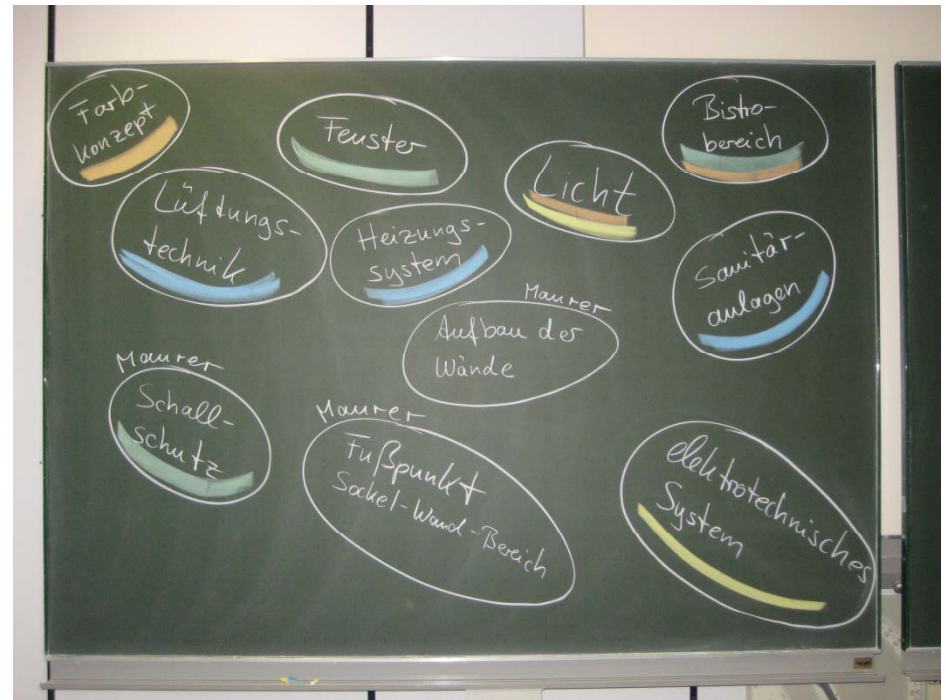 Farb-
konzept
Fenster
Bistro-
bereich
Licht
Lüftungs-
technik
Heizungs-
system
Sanitär-
anlagen
Maurer
Aufbau der
Wände
Maurer
Schall-
schutz
Maurer
Fußpunkt
Sockel-Wand-Bereich
elektrotechnisches
System